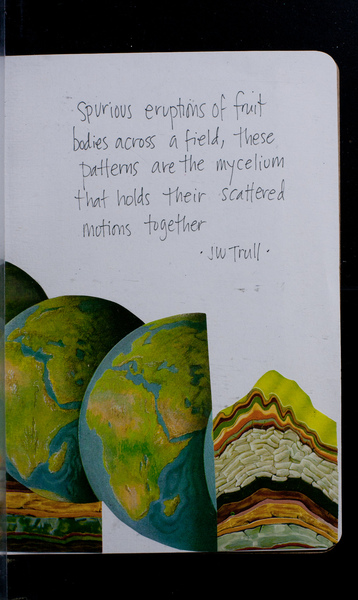 Spurious eruptions of fruit
bodies across a field, these
patterns are the mycelium
that holds their scattered
motions together
· JW Trull ·